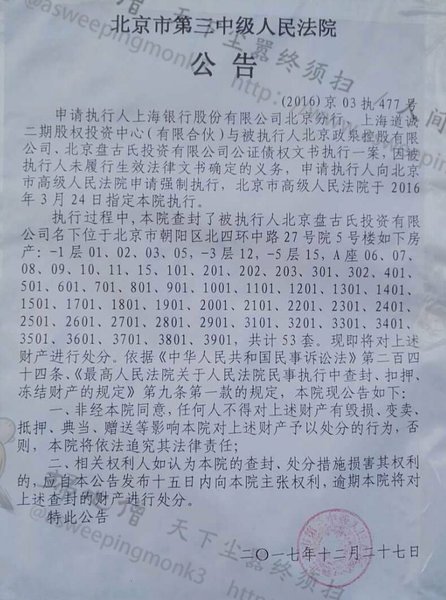 北京市第三中级人民法院
公告
(2016)京03执477号
申请执行人上海银行股份有限公司北京分行、上海道诚
二期股权投资中心(有限合伙)与被执行人北京政泉控股有限
公司、北京盘古氏投资有限公司公证债权文书执行一案，因被
执行人未履行生效法律文书确定的义务，申请执行人向北京
市高级人民法院申请强制执行，北京市高级人民法院于2016
年3月24日指定本院执行。
执行过程中，本院查封了被执行人北京盘古氏投资有限
公司名下位于北京市朝阳区北四环中路27号院5号楼如下房
产：-1层01、02、03、05，-3层12，-5层15，A座06、07、
08、09、10、11、15、101、201、202、203、301、302、401、
501、601、701、801、901、1001、1101、1201、1301、1401、
1501、1701、1801、1901、2001、2101、2201、2301、2401、
2501、2601、2701、2801、2901、3101、3201、3301、3401、
3501、3601、3701、3801、3901，共计53套。现即将对上述
财产进行处分。依据《中华人民共和国民事诉讼法》第二百四
十四条、《最高人民法院关于人民法院民事执行中查封、扣押、
冻结财产的规定》第九条第一款的规定，本院现公告如下：
一、非经本院同意，任何人不得对上述财产有毁损、变卖、
抵押、典当、赠送等影响本院对上述财产予以处分的行为，否
则，本院将依法追究其法律责任；
二、相关权利人如认为本院的查封、处分措施损害其权利
的，应自本公告发布十五日内向本院主张权利，逾期本院将对
上述查封的财产进行处分。
特此公告
二〇一七年十二月二十七日
@asweepingmonk3
天下尘嚣终须扫